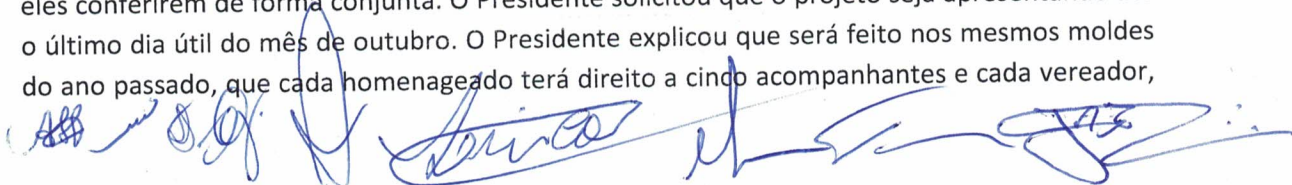 eles conferirem de forma conjunta. O Presidente solicitou que o projeto seja
o último dia útil do mês de outubro. O Presidente explicou que será feito nos mesmos moldes
do ano passado, que cada homenageado terá direito a cinco acompanhantes e cada vereador,